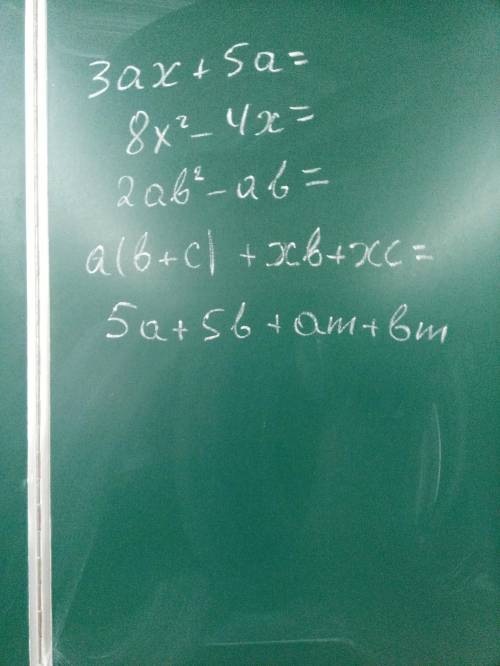 3ax + 5a =
8x² - 4x =
2ab² - ab =
a(b + c) + xb + xc =
5a + 5b + am + bm